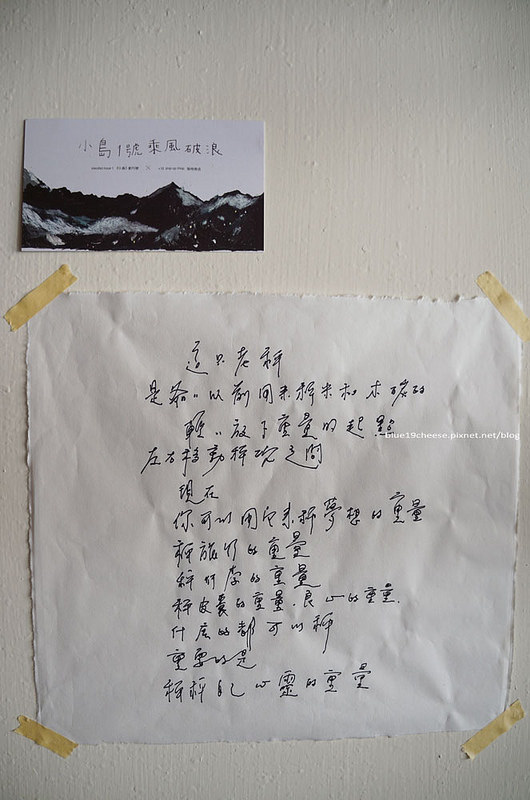 小島1號乘風破浪
這只老秤
是爺〃以前用來秤米和木碳的
輕〃放下重量的起點
左右移動秤砣之間
現在
你可以用它來秤夢想的重量
秤旅行的重量
秤行李的重量
秤皮囊的重量.良心的重量.
什麼的都可以秤
重要的是
秤秤自己心靈的重量
blue19cheese.pixnet.net/blog